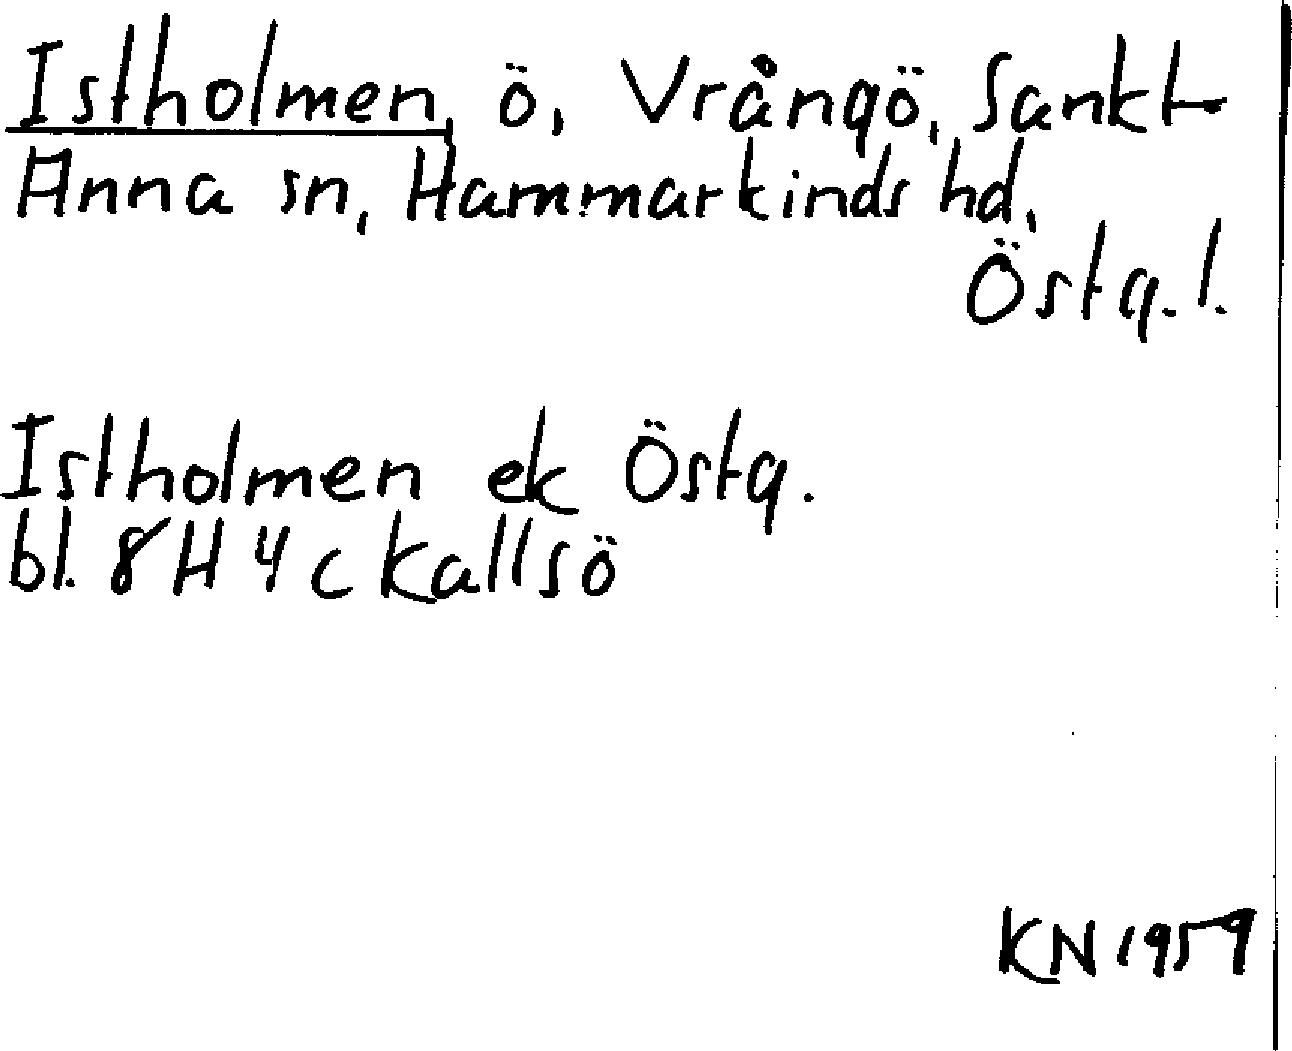 Istholmen, ö, Vrångö, Sankt
Anna sn, Hammarkinds hd,
Östg. l.
Istholmen ek Östg.
bl. 8H 4c Kallsö
KN 1959